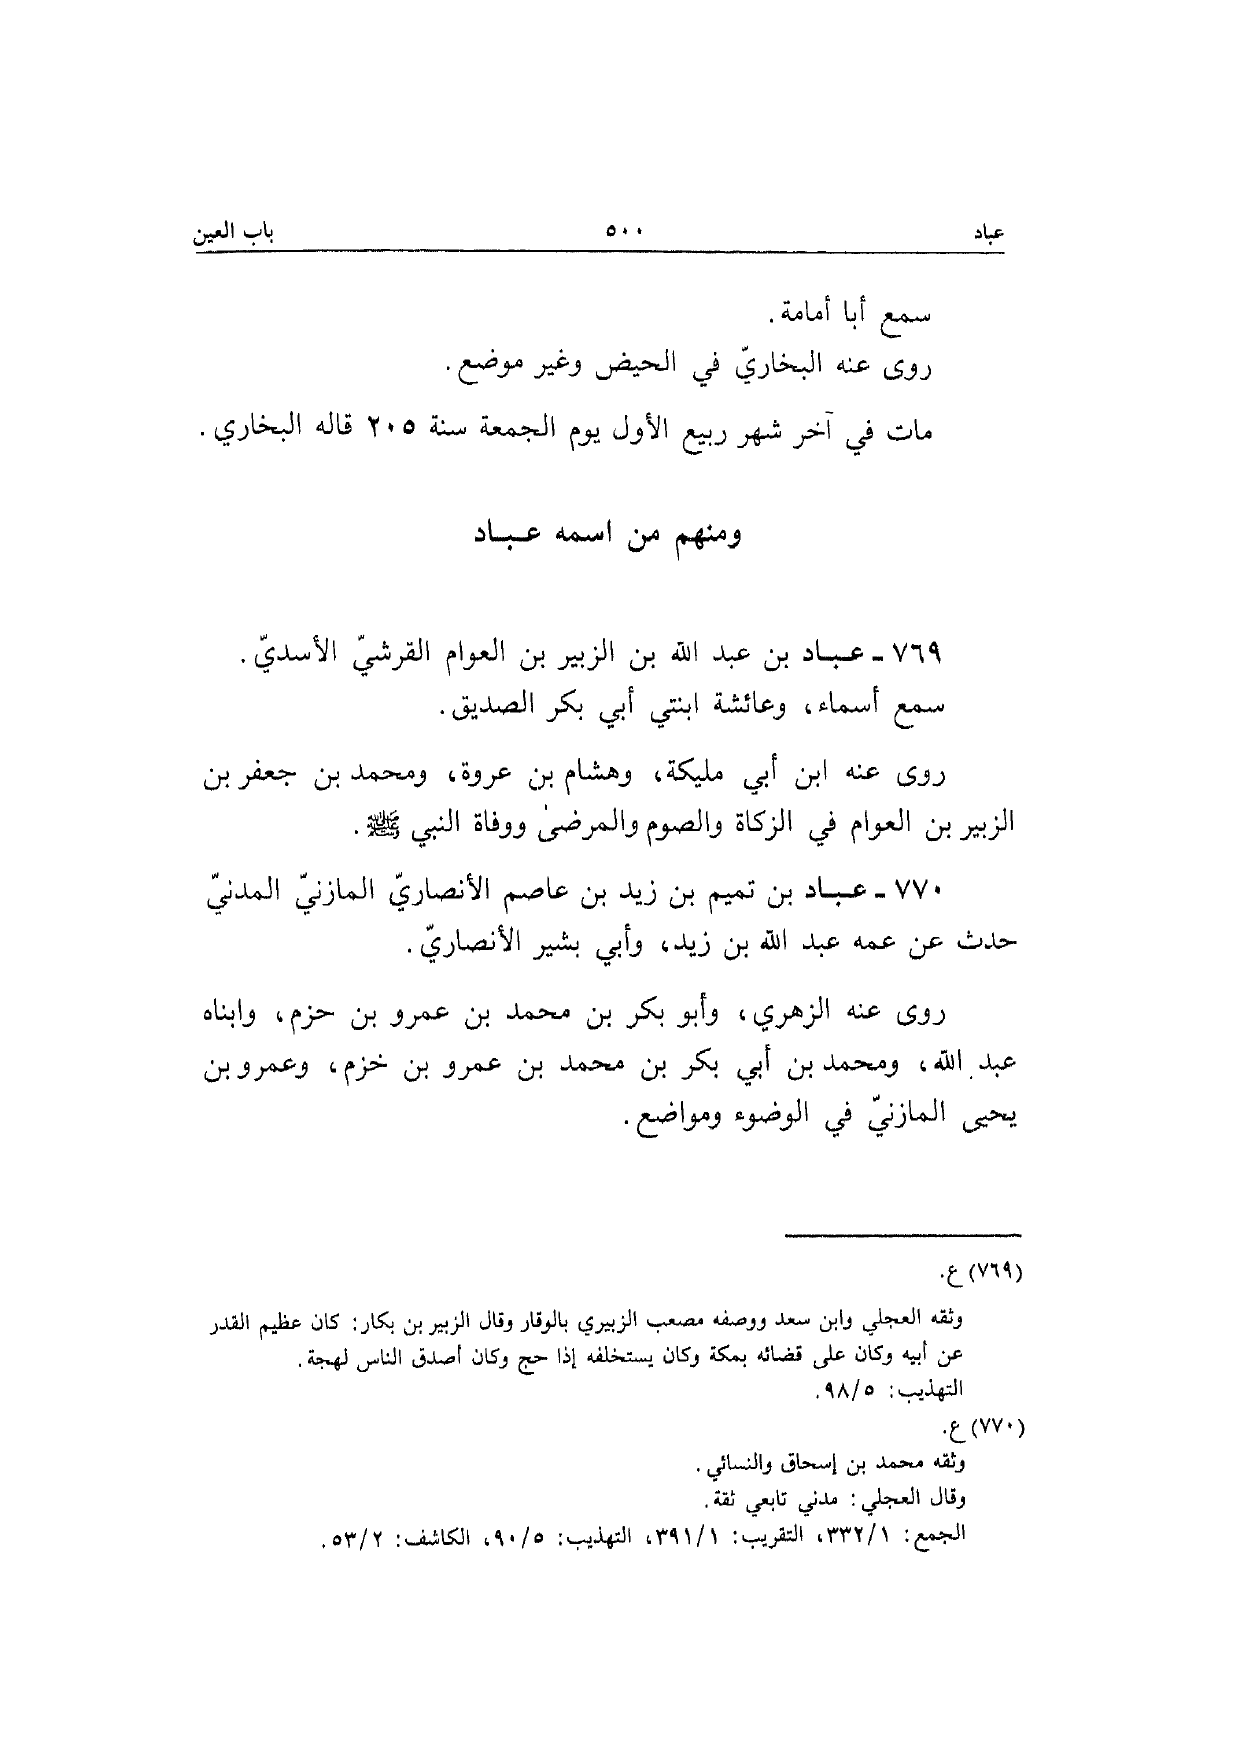 عباد ٥٠٠ باب العين
سمع أبا أمامة.
روى عنه البخاريّ في الحيض وغير موضع.
مات في آخر شهر ربيع الأول يوم الجمعة سنة ٢٠٥ قاله البخاري.
ومنهم من اسمه عباد
٧٦٩ ـ عباد بن عبد الله بن الزبير بن العوام القرشيّ الأسديّ.
سمع أسماء، وعائشة ابنتي أبي بكر الصديق.
روى عنه ابن أبي مليكة، وهشام بن عروة، ومحمد بن جعفر بن
الزبير بن العوام في الزكاة والصوم والمرضىٰ ووفاة النبي ﷺ.
٧٧٠ ـ عباد بن تميم بن زيد بن عاصم الأنصاريّ المازنيّ المدنيّ
حدث عن عمه عبد الله بن زيد، وأبي بشير الأنصاريّ.
روى عنه الزهري، وأبو بكر بن محمد بن عمرو بن حزم، وابناه
عبد الله، ومحمد بن أبي بكر بن محمد بن عمرو بن خزم، وعمرو بن
يحيى المازنيّ في الوضوء ومواضع.
(٧٦٩) ع.
وثقه العجلي وابن سعد ووصفه مصعب الزبيري بالوقار وقال الزبير بن بكار: كان عظيم القدر
عن أبيه وكان على قضائه بمكة وكان يستخلفه إذا حج وكان أصدق الناس لهجة.
التهذيب: ٩٨/٥.
(٧٧٠) ع.
وثقه محمد بن إسحاق والنسائي.
وقال العجلي: مدني تابعي ثقة.
الجمع: ٣٣٢/١، التقريب: ٣٩١/١، التهذيب: ٩٠/٥، الكاشف: ٥٣/٢.